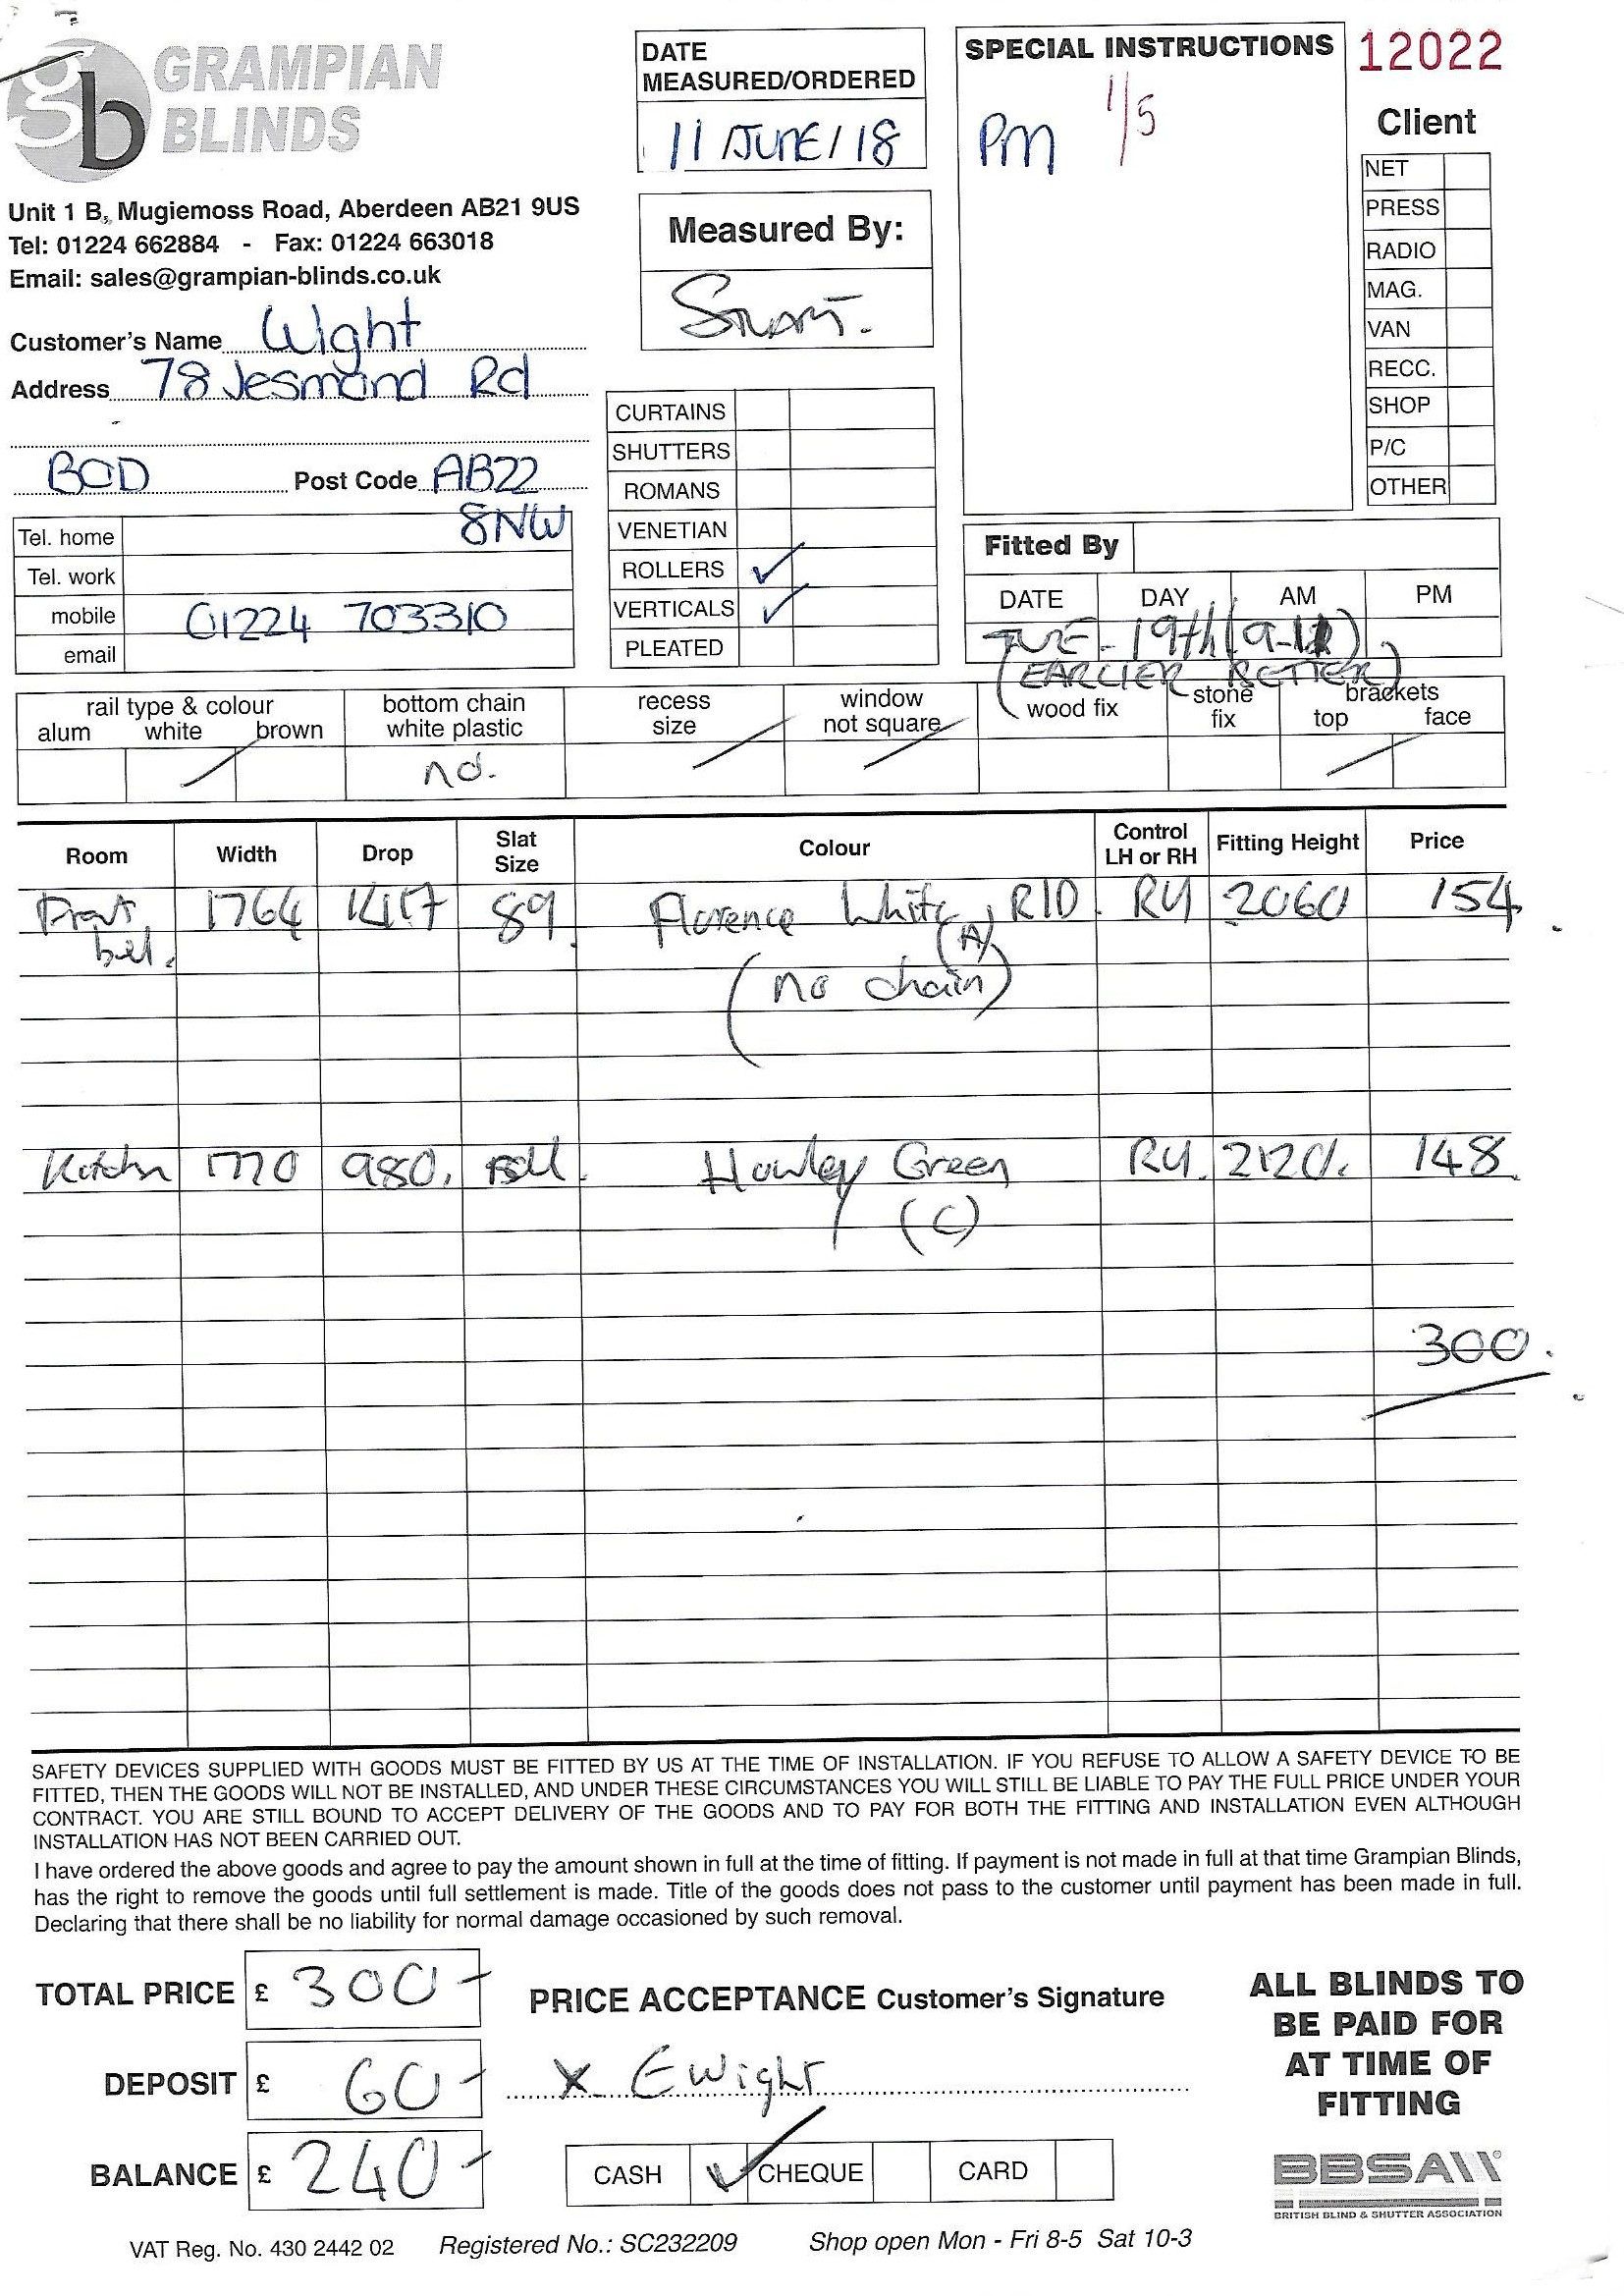 gb GRAMPIAN
BLINDS
Unit 1 B, Mugiemoss Road, Aberdeen AB21 9US
Tel: 01224 662884 - Fax: 01224 663018
Email: sales@grampian-blinds.co.uk
Customer's Name Wight
Address 78 Jesmond Rd
BOD Post Code AB22
8NW
Tel. home
Tel. work
mobile 01224 703310
email
DATE
MEASURED/ORDERED
11 JUNE / 18
Measured By:
Stuart.
CURTAINS
SHUTTERS
ROMANS
VENETIAN
ROLLERS ✓
VERTICALS ✓
PLEATED
SPECIAL INSTRUCTIONS
PM 1/5
12022
Client
NET
PRESS
RADIO
MAG.
VAN
RECC.
SHOP
P/C
OTHER
Fitted By
DATE DAY AM PM
TUE - 19th
(EARLIER BETTER)
rail type & colour
alum white brown
bottom chain
white plastic
no.
recess
size
window
not square
wood fix
stone
fix
brackets
top face
Room Width Drop Slat Size Colour Control LH or RH Fitting Height Price
Front 1764 89 Florence White, R10. RH 2060 154
bed. (A)
(no chain)
Kitchen 1770 980. roll. Howley Green RH. 2120. 148
(C)
300.
SAFETY DEVICES SUPPLIED WITH GOODS MUST BE FITTED BY US AT THE TIME OF INSTALLATION. IF YOU REFUSE TO ALLOW A SAFETY DEVICE TO BE
FITTED, THEN THE GOODS WILL NOT BE INSTALLED, AND UNDER THESE CIRCUMSTANCES YOU WILL STILL BE LIABLE TO PAY THE FULL PRICE UNDER YOUR
CONTRACT. YOU ARE STILL BOUND TO ACCEPT DELIVERY OF THE GOODS AND TO PAY FOR BOTH THE FITTING AND INSTALLATION EVEN ALTHOUGH
INSTALLATION HAS NOT BEEN CARRIED OUT.
I have ordered the above goods and agree to pay the amount shown in full at the time of fitting. If payment is not made in full at that time Grampian Blinds,
has the right to remove the goods until full settlement is made. Title of the goods does not pass to the customer until payment has been made in full.
Declaring that there shall be no liability for normal damage occasioned by such removal.
TOTAL PRICE £ 300-
DEPOSIT £ 60-
BALANCE £ 240-
PRICE ACCEPTANCE Customer's Signature
X E Wight
CASH ✓ CHEQUE CARD
ALL BLINDS TO
BE PAID FOR
AT TIME OF
FITTING
BBSA
BRITISH BLIND & SHUTTER ASSOCIATION
VAT Reg. No. 430 2442 02 Registered No.: SC232209 Shop open Mon - Fri 8-5 Sat 10-3